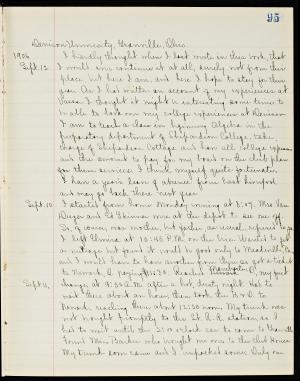 95
Denison University, Granville, Ohio
1906 I hardly thought when I last wrote in this book, that
Sept. 12 I would ever continue it at all, surely not from this
place, but here I am, and here I hope to stay for this
year. As I had written an account of my experiences at
Vassar I thought it might be interesting some time to
be able to look on my college experience at Denison
I am to teach a class in beginning Algebra in the
preparatory department of Shepardson College, take
charge of Shepardson Cottage and have all College expenses
and the amount to pay for my board on the club plan
for these services. I think myself quite fortunate.
I have a year's leave of absence from East
and may go back there next year.
Sept. 10 I started from home Monday evening at 8:07. Mrs Van
and at the depot to see me off
of course was mother, but father as usual, refused to go
I left Elmira at 10:45 P.M. on the Erie. Wanted to get
a mileage but found it would be good only to
and I would have to have another from there so got a ticket
to Newark, O. paying $10.30. Reached Mansfield, O, my first
change, at 9:30 A.M. after a hot, dusty night. Had to
Sept 11, wait there about an hour, then took the B & O to
Newark reaching there about 12:30 noon. My trunk was
not brought promptly to the St. R.R. station, so I
had to wait until the 2:10 o'clock car to come to Granville
Found Miss Barker who brought me over to the Club House.
My trunk soon came and I unpacked some. Only one